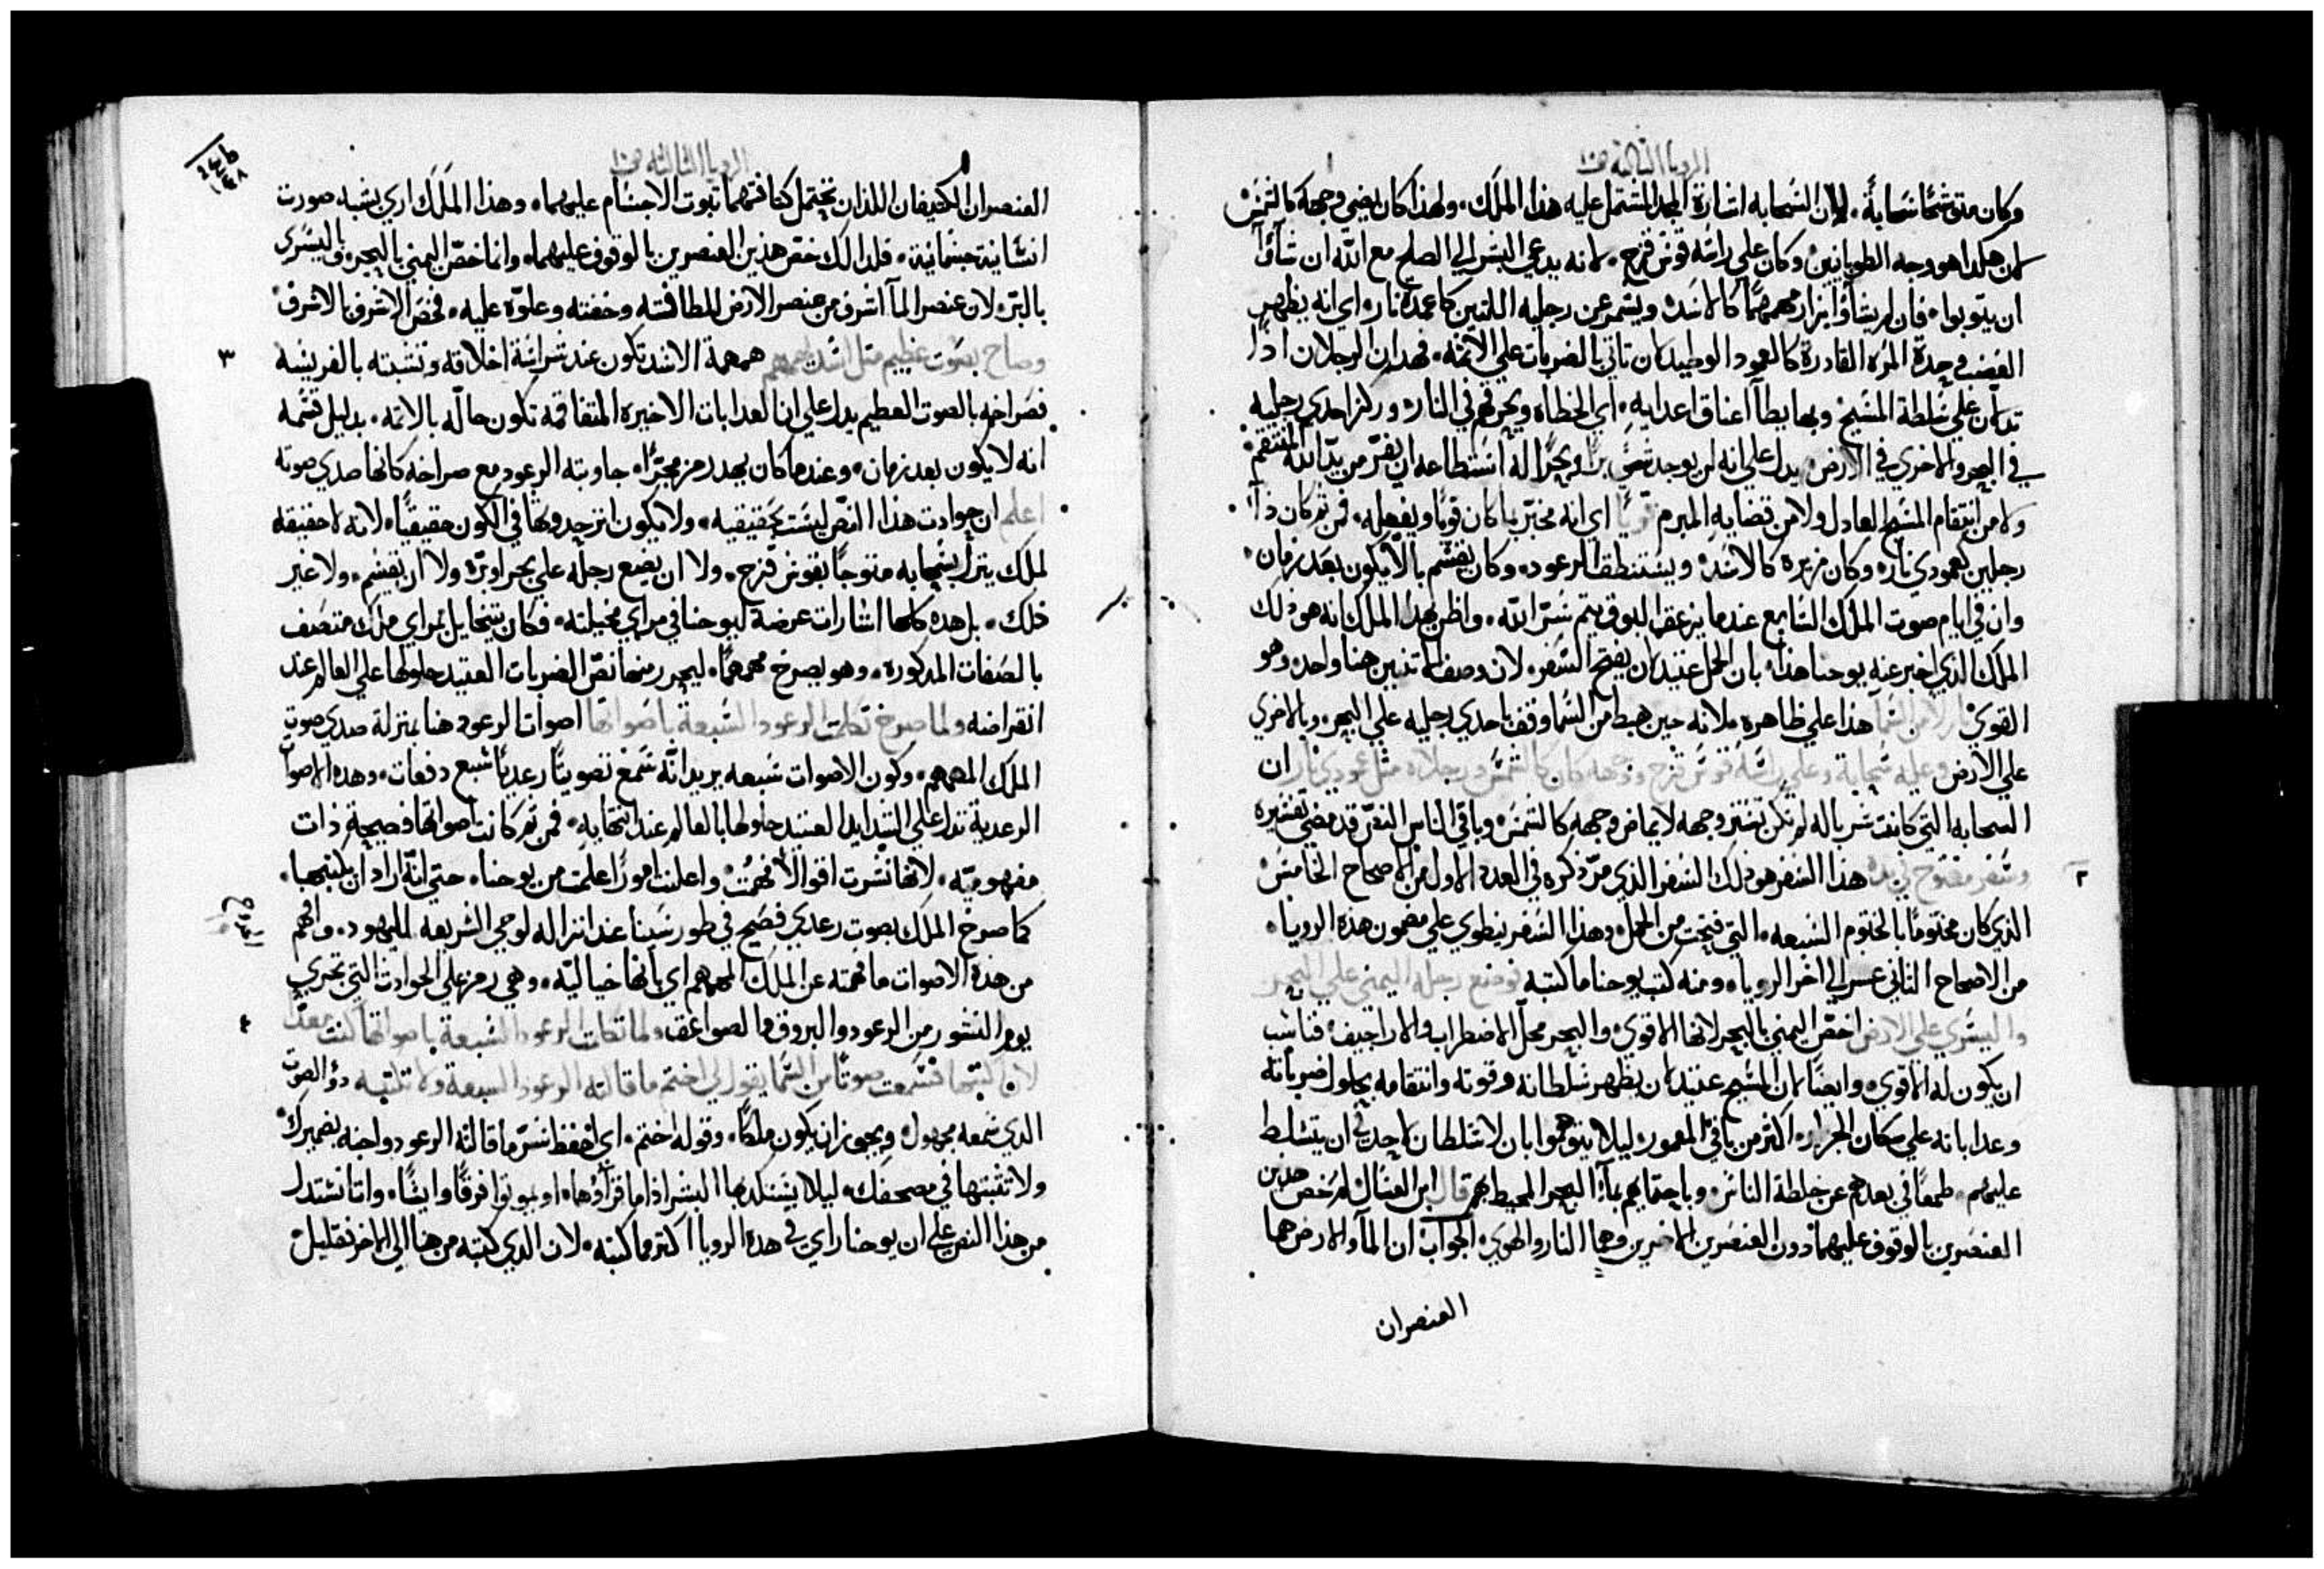 الرويا الثالثة ص١٠
وكان متوشحًا سَحابةً. لان السَحابه اشارة المجد المشتمل عليه هذا الملَك. ولهذا كان يضي وجهه كالشمسْ
لان هكذا هو وجه الطوبانيين وكان علي راسَه قوسْ قزح. لانه يدعي البشر الي الصلح مع الله ان شآؤا
ان يتوبوا. فان لم يشآؤا يزار مهمهمًا كالاسَد. ويشمر عن رجليه اللتين كاعمدة نار. اي انه يظهر
الغضب وحدّة المرّه القادرة كالعمود الوطيد ان تاتي بالضربات علي الاثمة. فهدان الرجلان اذًا
تدلان علي سَلطة المسَيح وبها يطاّ اعناق اعدايه. اي الخطاه ويحرقهم في النار. وركز احدي رجليه
في البحر والاخري في الارض. يدل علي انه لن يوجد شي برًا وبحرًا له اسَتطاعه ان يفرّ من يدّ الله المنتقم.
ولا من انتقام المسَيح العادل ولا من قضايه المبرم قويًا اي انه مخبّر بما كان قويًا ويفعله. فمن ثم كان ذا
رجلين كعمودي نار. وكان مزيره كالاسَد. ويسَتنطق الرعود. وكان يقسَم بالاّ يكون بعَد زمان.
وان في ايام صوت الملَاك السَابع عندما يزعق بالبوق يتم سَرّ الله. واظن بهذا الملاك انه هو ذلك
الملَك الذي اخبر عنه يوحنا هذا. بان الحمل عتيد ان يفتح السَفر. لان وصف الاتنين هنا واحد. وهو
القويْ نازلا من السَما هذا علي ظاهره. لانه حين هبط من السَما وقف باحدي رجليه علي البحر. وبالاخري
علي الارض وعليه سَحابة وعلي راسَه قوسْ قزح ووجهه كان كالشمسْ ورجلاه مثل عمودي نار ان
السحابه التي كانت سَربا له لم تكن تسَتر وجهه لايماض وجهه كالشمسْ. وباقي الناس النصّ قد مضي تفسَيره
٢ وسَفر مفتوح في يده هذا السَفر هو ذلك السَفر الذي مرّ ذكره في العدد الاول من الاصحاح الخامسْ
الذي كان مختومًا بالختوم السَبعه. التي فتحت من الحمل. وهذا السَفر ينطوي علي مضمون هذه الرويا.
من الاصحاح الثاني عسر الي اخر الرويا. ومنه كتب يوحنا ما كتبه فوضع رجله اليمني علي البحر
واليسَري علي الارض اختصّ اليمني بالبحر لانها الاقوي. والبحر محل الاضطراب والاراجيف. فناسَب
ان يكون له الاقوي. وايضًا لان المسَيح عتيد ان يظهر سَلطانه وقوته وانتقامه بحلول ضرباته
وعداباته علي سَكان الجراير. اكتر من باقي المعمور. ليلا يتوهموا بان لا سَلطان لاحد في ان يتسَلط
عليهم. طمعًا في بعدهم عن خلطة الناسْ. وباحتمايهم بماء البحر المحيط بهم قال ابن العسَال لم خصّ هدين
العنصَرين بالوقوف عليهما دون العنصَرين الاخيرين وهما النار والهوي. الجواب ان المآ والارض هما
العنصران
الرويا الثالثه ص١٠
العنصران الكتيفان اللذان تحتمل كتافتهما تبوت الاجسَام عليهما. وهذا الملَك اري بشبه صورت
انسَانية جسَمانية. فلدالك خصّ هذين العنصرين بالوقوف عليهما. وانما خصّ اليمني بالبحر. واليسَري
بالبرّ. لان عنصر المآ اشرف من عنصر الارض للطافته وخفته وعلوّه عليه. فخصّ الاشرف بالاشرف
وصاح بصَوت عظيم مثل اسَد يهمهم همهمة الاسَد تكون عند شراسَة اخلاقه وتشبته بالفريسَه ٣
فصَراخه بالصوت العظيم يدل علي ان العدابات الاخيره المتفاقمة تكون حالّه بالاثمه. بدليل قسَمه
انه لا يكون بعد زمان. وعندما كان يجدد زمزمجرًا. جاوبته الرعود مع صراخه كانها صدي صوته
اعلم ان حوادت هذا النصّ ليسَت بحقيقيه. ولا يكون انز حدوثها في الكون حقيقيًا. لانه لا حقيقه
لملك يتزر بسَحابه متوجًا بقوسْ قزح. ولا ان يضع رجله علي بحر او برّ. ولا ان يقسَم. ولا غير
ذلك. بل هده كلها اشارات عرضة ليوحنا في مراي مخيلته. فكان يتخايل بمراي ملك متصَف
بالصَفات المدكوره. وهو يصرخ مهمهمًا. ليحرر منها نصّ الضربات العتيد حلولها علي العالم عند
انقراضه ولما صرخ تكلمت الرعود السَبعة باصَواتها اصوات الرعود هنا بمنزلة صدي صوت
الملَك المهمهم. وكون الاصوات سَبعه يريد انّه سَمع تصويتًا رعديًا سَبع دفعات. وهده الاصوات
الرعدية تدل علي الشدايد العتيد حلولها بالعالم عند انتهايه. فمن ثم كانت اصواتها فصيحة ذات
مفهومية. لانها نسَرت اقوالاً فُهمتْ. واعلنت امورًا علمت من يوحنا. حتي انّه اراد ان يكتبها.
كما صرخ الملَك بصوت رعدي فصَيح في طور سَينا عند انزاله لوحي الشريعه لليهود. وافهم
من هذه الاصوات ما فهمته عن الملَك المهمهم اي بانها خياليّه. وهي رمز علي الحوادث التي تجري
يوم النشور من الرعود والبروق والصواعق ولما تكلمت الرعود السَبعة باصواتها كنت معدًا ٤
لان اكتبها فسَمعت صوتًا من السَما يقول لي اختم ما قالته الرعود السبعة ولا تكتبه دوُّ الصوت
الدي سَمعه مجهول. ويجوز ان يكون ملَكًا. وقوله اختم. اي احفظ سَرّ ما قالته الرعود واجنه بضميرك
ولا تثبتها في مصحفك. ليلا يسَتلدها البشر اذا ما قراؤها. او يموتوا فرقًا وايسًا. وانا نسَتدل
من هذا النص علي ان يوحنا راي في هده الرويا اكتر مما كتبه. لان الدي كتبه من هنا الي الاخر فقليل